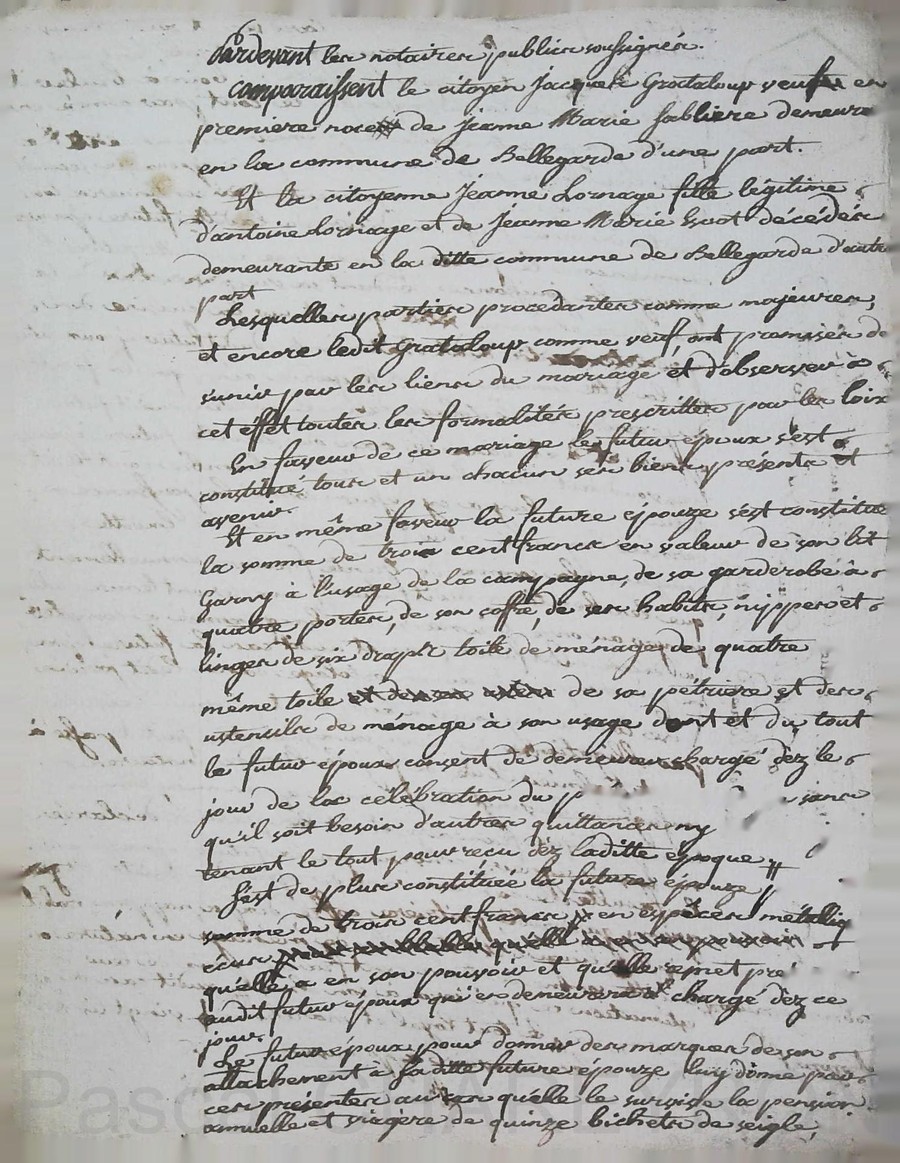 Pardevant les notaires publics soussignés.
comparaissent le citoyen Jacques Grataloup veuf en
première noces de Jeanne Marie Sabliere demeura
en la commune de Bellegarde d'une part.
Et la citoyenne Jeanne Lornage fille légitime
d'antoine Lornage et de Jeanne Marie Escot décédés
demeurante en la ditte commune de Bellegarde d'autre
part
Lesquelles parties procedantes comme majeures,
et encore ledit Grataloup comme veuf, ont promises de
s'unir par les liens du mariage et d'observer à
cet effet toutes les formalités prescrittes par les loix
En faveur de ce mariage le futur époux s'est
constitué tous et un chacun ses biens présents et
avenir.
Et en même faveur la future épouze s'est constituée
la somme de trois cent francs en valeur de son lit
Garny à l'usage de la campagne, de sa garderobe à
quatre portes, de son coffre, de ses habits, nippes et
linges de six draps toile de ménage de quatre
même toile de sa pétriere et des
ustensils de ménage à son usage dont et du tout
le futur époux consent de demeurer chargé dez le
jour de la célébration du sans
qu'il soit besoin d'autres quittances ny
tenant le tout pour reçu dez laditte époque
S'est de plus constituée la future épouze
somme de trois cent francs en espèces métalliq
écus
qu'elle a en son pouvoir et qu'elle remet
audit futur époux qui en demeurera chargé dez ce
jour.
Le futur époux pour donner des marques de son
attachement à saditte future épouze luy donne par
ces présentes au cas qu'elle le survive la pension
annuelle et viagère de quinze bichets de seigle,